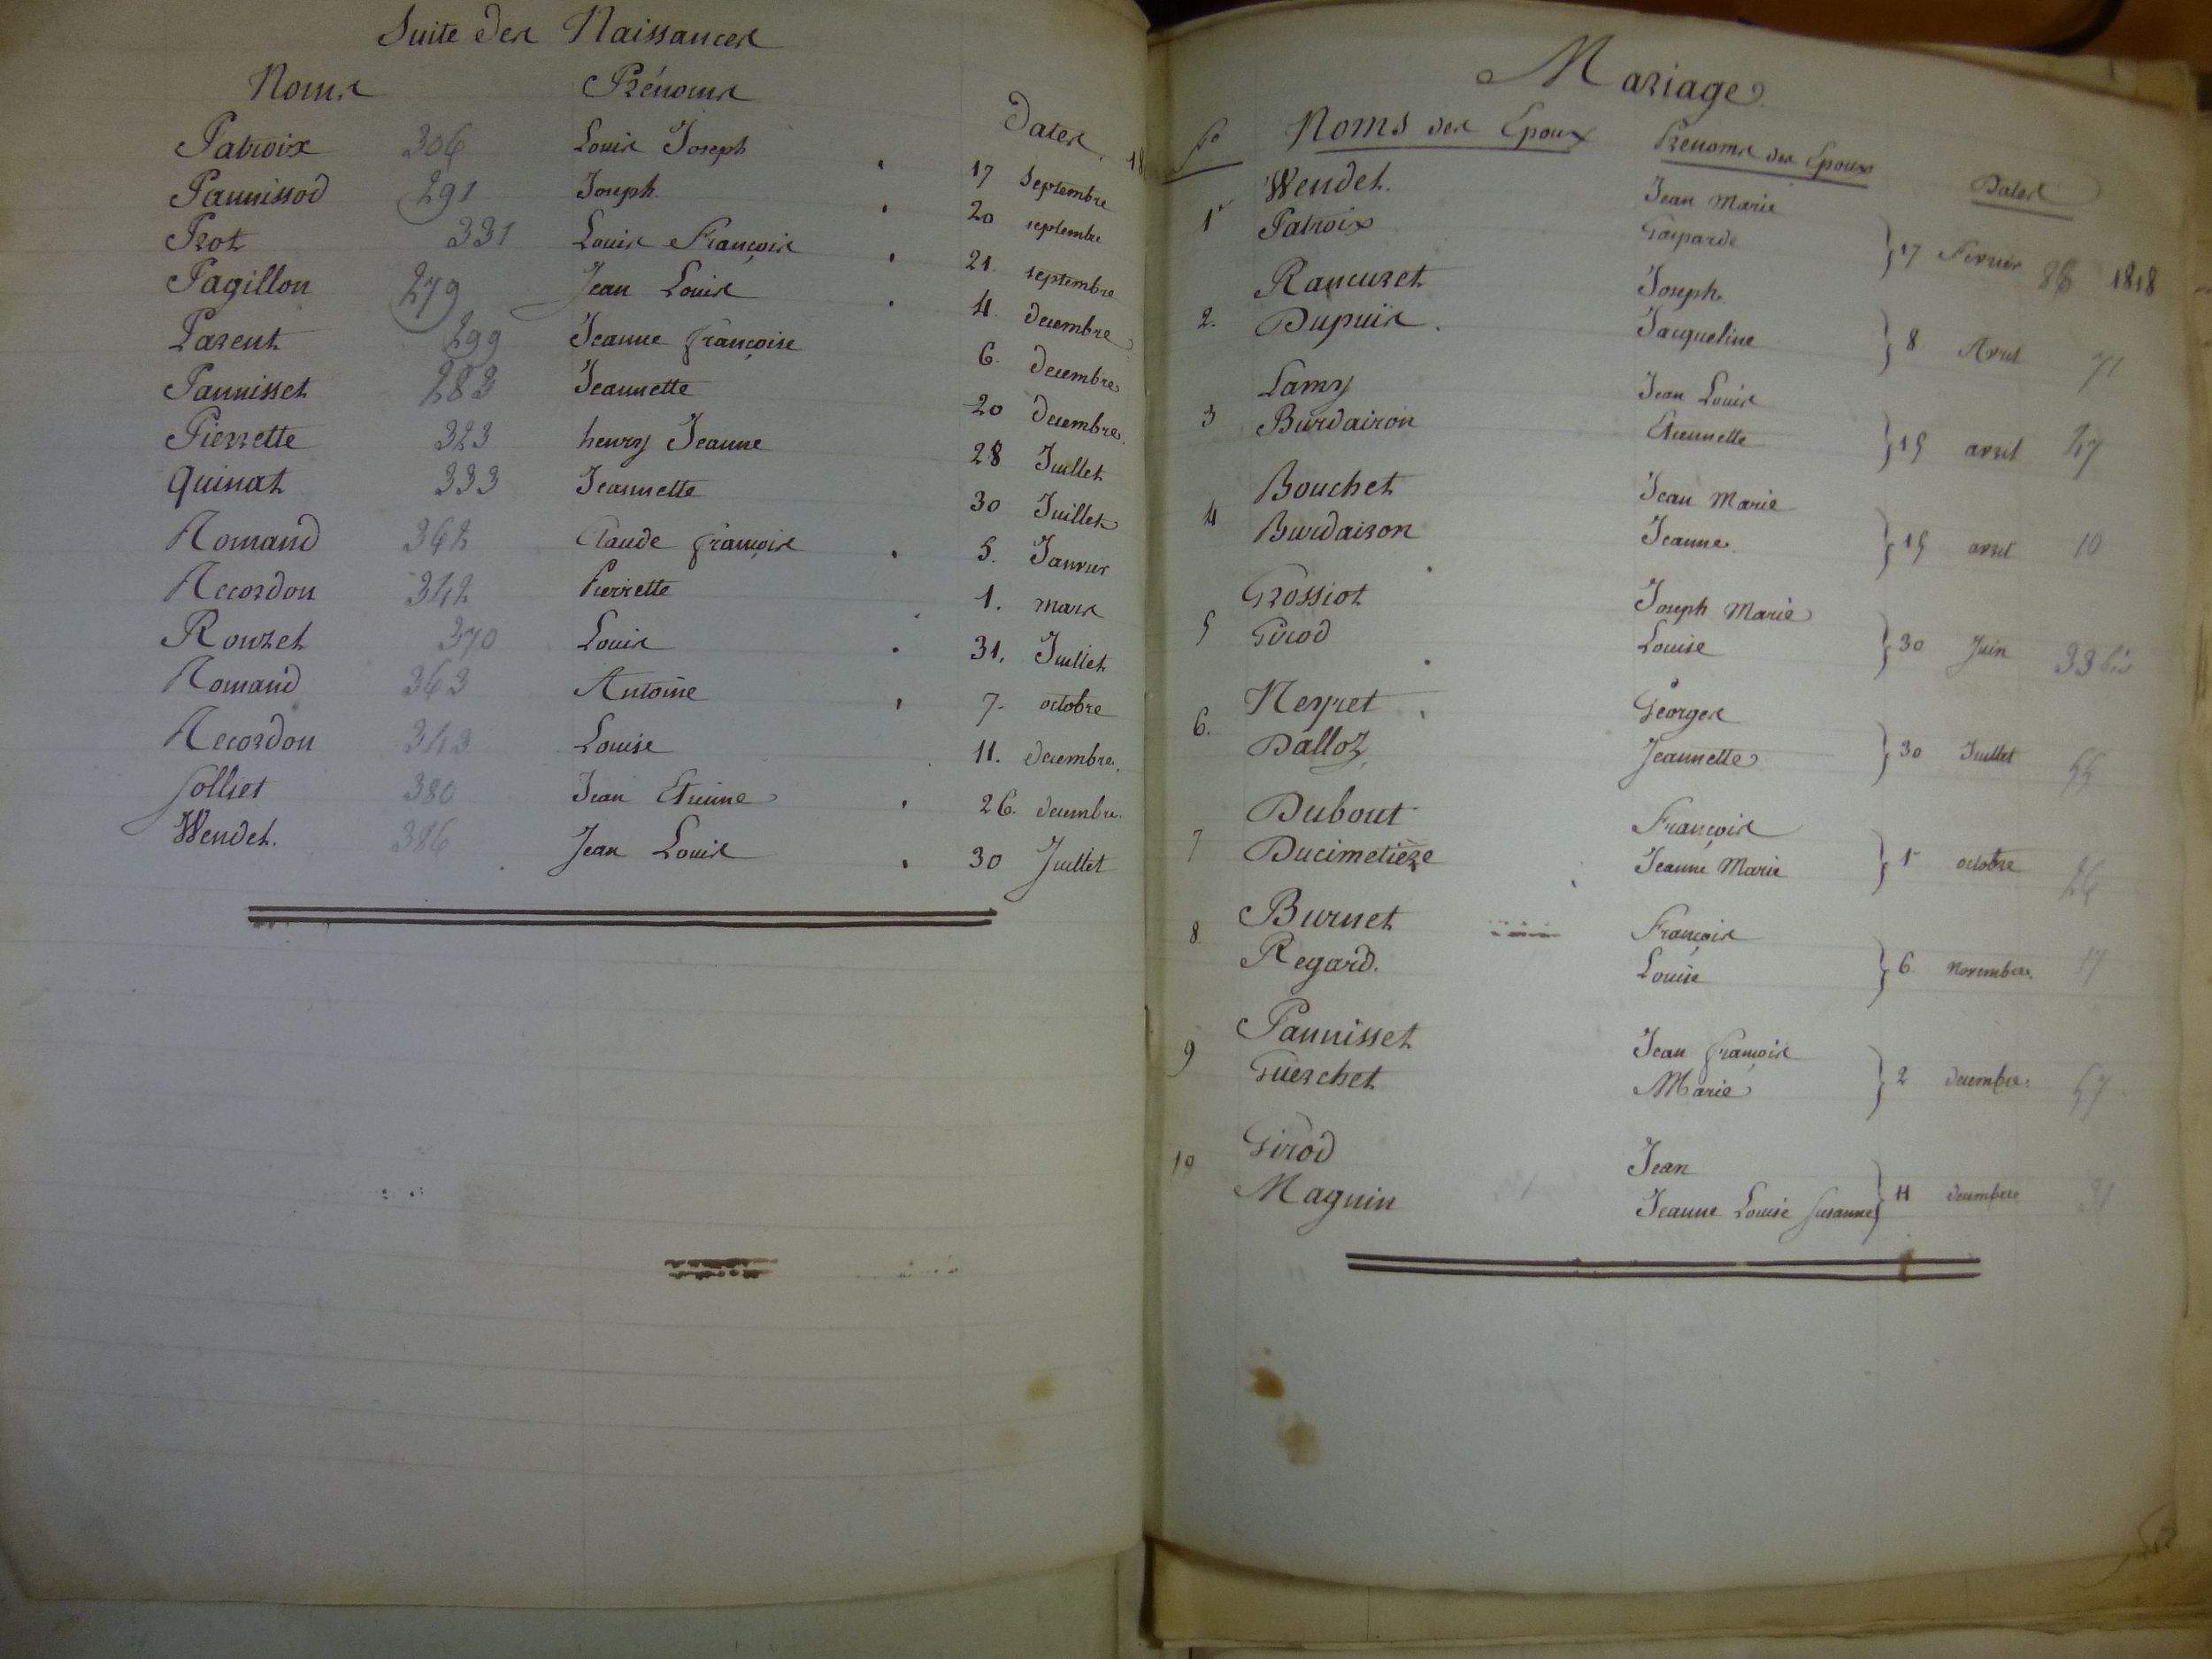 Suite des Naissances
Noms Prénoms Dates 18
Patroix 306 Louis Joseph 17 Septembre
Pannissod 291 Joseph 20 septembre
Prot 331 Louis François 21. septembre
Pagillon 279 Jean Louis 4. decembre
Parent 299 Jeanne françoise 6. decembre
Pannisset 283 Jeannette 20 decembre.
Pierrette 323 henry Jeanne 28 Juillet
Quinat 333 Jeannette 30 Juillet
Romand 362 Claude françois 5. Janvier
Recordon 342 Pierrette 1. mars
Rouzet 370 Louis 31. Juillet
Romand 363 Antoine 7. octobre
Recordon 343 Louise 11. decembre.
Solliet 380 Jean Etienne 26. decembre.
Wendet. 386 Jean Louis 30 Juillet
Mariage
Noms des Epoux Prenoms des Epoux Dates
Wendet. Jean Marie
1r Patroix Gasparde } 17 Fevrier 86 1818
Rancuret Joseph
2. Dupuis. Jacqueline } 8 Avril 71
Lamy Jean Louis
3 Burdairon Etiennette } 15 avril 47
Bouchet Jean Marie
4 Burdairon Jeanne } 15 avril 10
Grossiot Joseph Marie
5 Girod Louise } 30 Juin 33 bis
Neyret Georges
6. Dalloz Jeannette } 30 Juillet 55
Dubout François
7 Ducimetière Jeanne Marie } 1r octobre 26
Burnet François
8 Regard. Louise } 6 Novembre. 17
Pannisset Jean françois
9 Guerchet Marie } 2 decembre. 57
Girod Jean
10 Magnin Jeanne Louise Susanne } 11 decembre 31